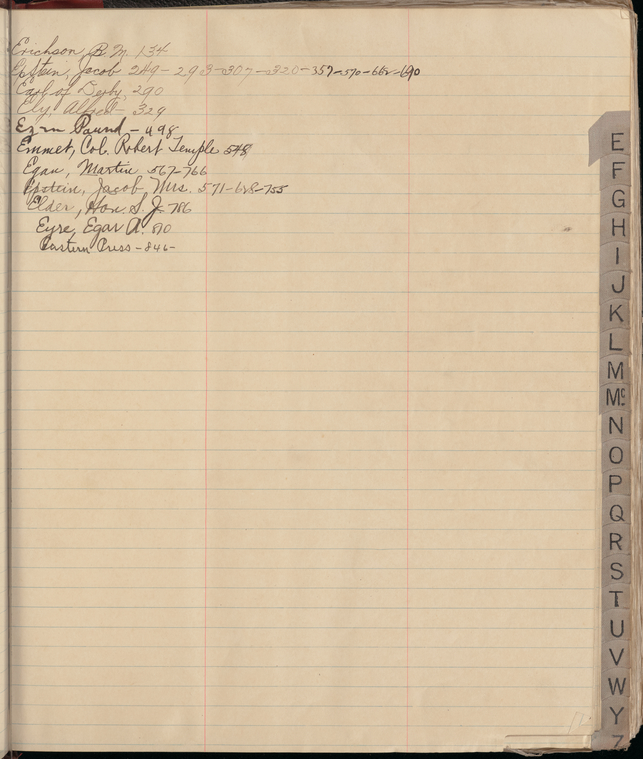 Erichson, B. M. 134
Epstein, Jacob 249-293-307-320-357-570-662-690
Earl of Derby 290
Ely, Alfred 329
Ezra Pound - 498
Emmet, Col. Robert Temple 548
Egan, Martin 567-766
Epstein, Jacob, Mrs. 571-628-755
Elder, Hon. S. J. 786
Eyre, Egar A. 810
Eastern Press - 846-
E
F
G
H
I
J
K
L
M
Mc
N
O
P
Q
R
S
T
U
V
W
Y
Z